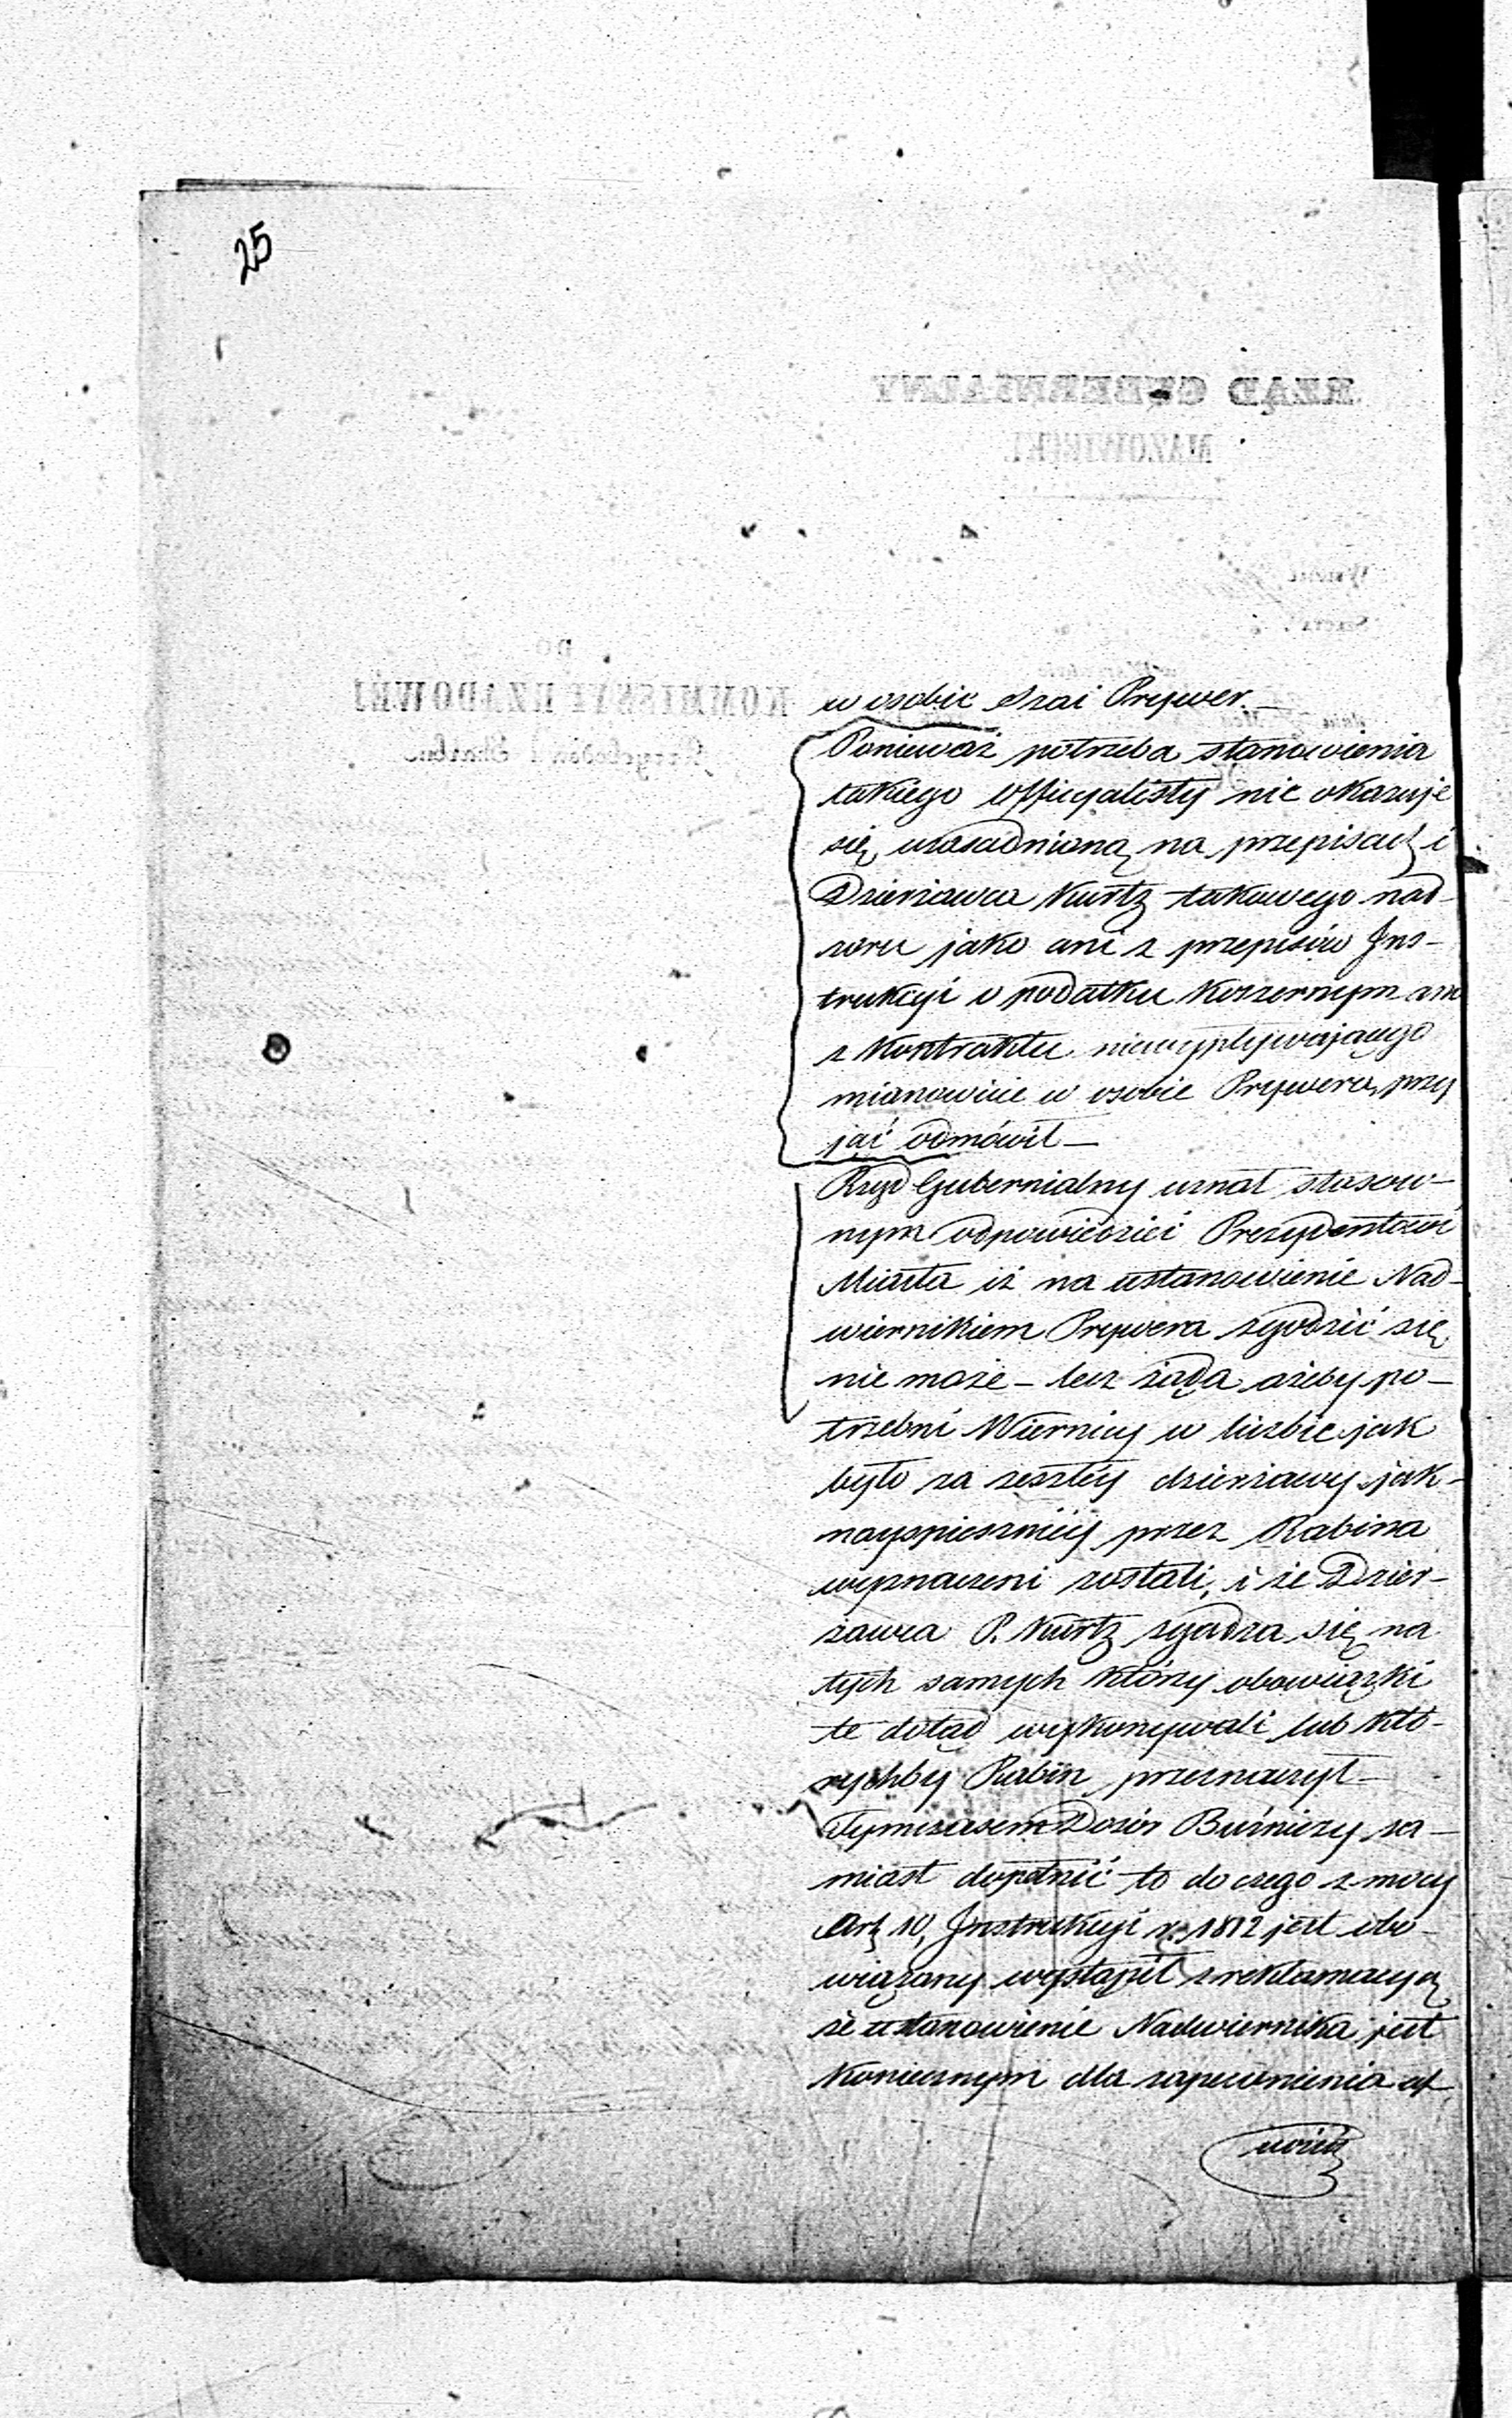 25
w osobie Szai Prywer.—
Ponieważ potrzeba stanowienia
takiego Officyalisty nie okazuje
się uzasadnioną na przepisach i
Dzierżawca Kurtz takowego nad-
zoru jako ani z przepisów Jns-
trukcyi o podatku Koszernym ani
z Kontraktu niewypływającego
mianowicie w osobie Prywera, przy
jąć odmówił—
Rząd Gubernialny uznał stosow-
nym odpowiedzieć Prezydentowi
Miasta iż na ustanowienie Nad-
wiernikiem Prywera zgodzić się
nie może — lecz żąda ażeby po-
trzebni Wiernicy w liczbie jak
było za zeszłéy dzierżawy jak-
nayspieszniéy przez Rabina
wyznaczeni zostali, i że Dzier-
żawca P. Kurtz zgadza się na
tych samych którzy obowiązki
te dotąd wykonywali lub któ-
rychby Rabin przeznaczył—
Tymczasem Dozór Bużniczy za-
miast dopełnić to do czego z mocy
Art 10, Jnstrukcyi r. 1812 jest obo-
wiązany wystąpił z reklamacyą
że ustanowienie Nadwiernika jest
Koniecznym dla zapewnienia
RZĄD GUBERNIALNY
MAZOWIECKI
DO
KOMMISSYI RZĄDOWÉJ
Przychodów i Skarbu